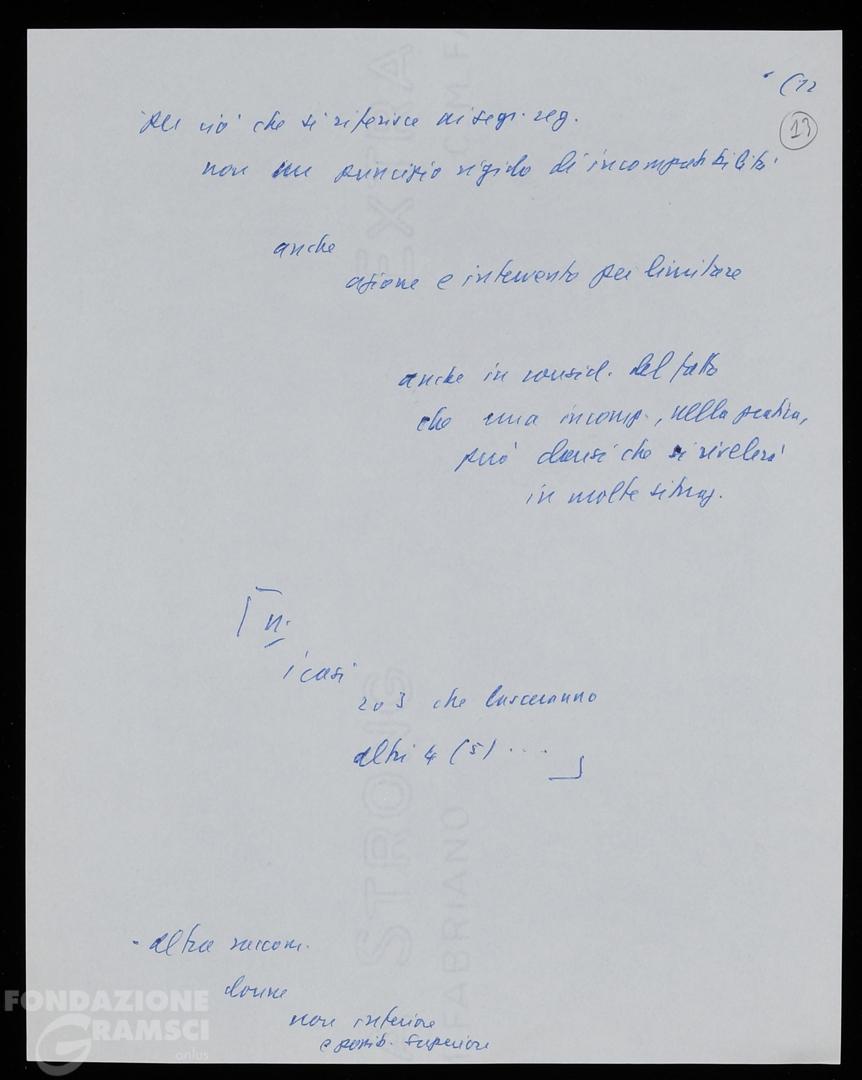 (12
13
per ciò che si riferisce ai segr. reg.
non un principio rigido di incompatibilità
anche
azione e intervento per limitare
anche in consid. del fatto
che una incomp., nella pratica,
può darsi che si rivelerà
in molte situaz.
n.
i casi
2 o 3 che lasceranno
altri 4 (5) ....
- altra raccom.
donne
non inferiore
e possib. superiore
EXTRA
STRONG
FABRIANO
FONDAZIONE
GRAMSCI
onlus